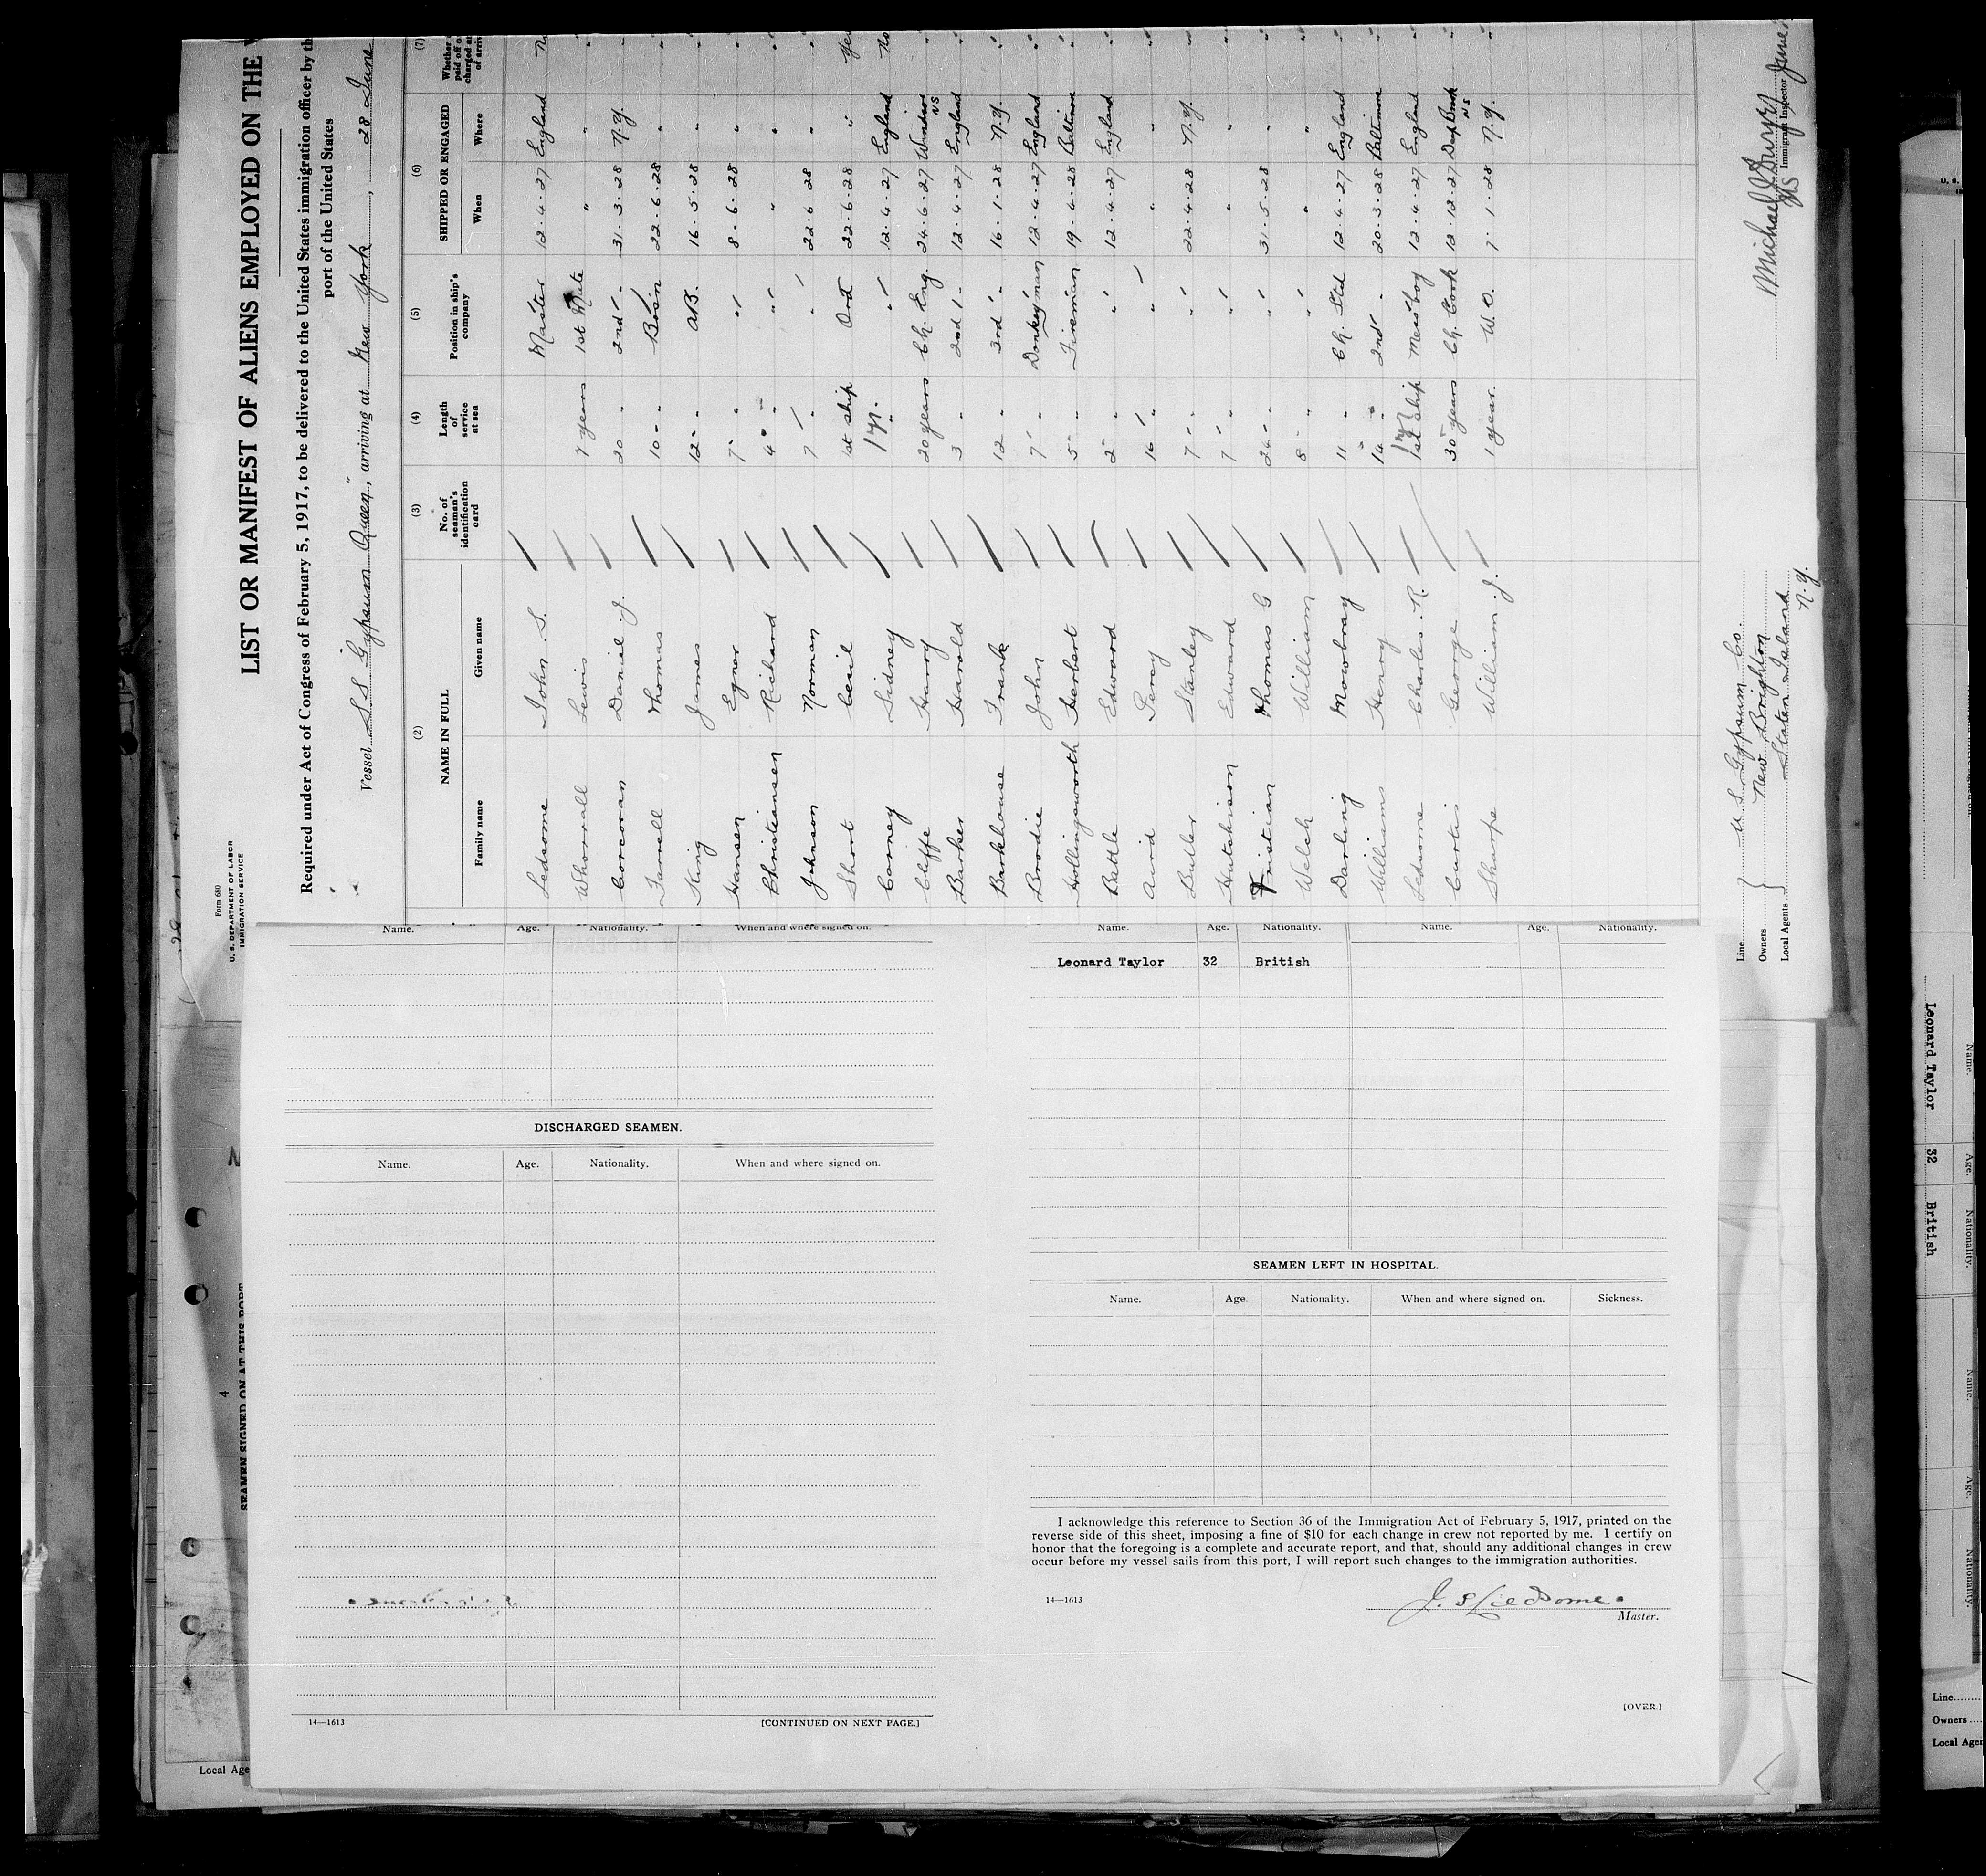 Form 680
U. S. DEPARTMENT OF LABOR
IMMIGRATION SERVICE
LIST OR MANIFEST OF ALIENS EMPLOYED ON THE
Required under Act of Congress of February 5, 1917, to be delivered to the United States immigration officer by th
port of the United States
Vessel S.S. "Gypsum Queen", arriving at New York, 28 June
(2) (3) (4) (5) (6) (7)
NAME IN FULL No. of seaman's identification card Length of service at sea Position in ship's company SHIPPED OR ENGAGED Whether paid off or charged at of arriv
Family name Given name When Where
Ledsome John S. Master 12-4-27 England no
Whorrall Lewis 7 years 1st Mate " " "
Corcoran Daniel J. 20 " 2nd " 31-3-28 N.Y. "
Farrell Thomas 10 " Bosin 22-6-28 " "
King James 12 " AB. 16-5-28 " "
Hansen Egner 7 " " 8-6-28 " "
Christiansen Richard 4 " " " " "
Johnson Norman 7 " " 22-6-28 " "
Short Cecil 1st ship Ord 22-6-28 " Yes
Carney Sidney 1 yr. " 12-4-27 England no
Cliffe Harry 20 years Ch. Eng. 24-6-27 Windsor NS "
Barker Harold 3 " 2nd " 12-4-27 England "
Barkhouse Frank 12 " 3rd " 16-1-28 N.Y. "
Brodie John 7 " Donkeyman 12-4-27 England "
Hollingsworth Herbert 5 " Fireman 19-4-28 Baltimore "
Bettle Edward 2 " " 12-4-27 England "
Avid Percy 16 " " " " "
Butler Stanley 7 " " 22-4-28 N.Y. "
Hutchison Edward 7 " " " " "
Kristian Thomas G 26 " " 31-5-28 " "
Welch William 8 " " " " "
Darling Mowbray 11 " Ch. Std 12-4-27 England "
Williams Henry 14 " 2nd " 20-3-28 Baltimore "
Ledsome Charles R. 1 yr 1st ship Mess boy 12-4-27 England "
Curtis George 30 years Ch. Cook 12-12-27 NS "
Sharpe William J. 1 year. W.O. 7-1-28 N.Y. "
Michael J.
Immigrant Inspector
June
Line
Owners
Local Agents
U.S. Gypsum Co.
New Brighton
Staten Island
N.Y.
Name. Age. Nationality. When and where signed on.
DISCHARGED SEAMEN.
Name. Age. Nationality. When and where signed on.
14—1613
[CONTINUED ON NEXT PAGE.]
Name. Age. Nationality. Name. Age. Nationality.
Leonard Taylor 32 British
SEAMEN LEFT IN HOSPITAL.
Name. Age. Nationality. When and where signed on. Sickness.
I acknowledge this reference to Section 36 of the Immigration Act of February 5, 1917, printed on the
reverse side of this sheet, imposing a fine of $10 for each change in crew not reported by me. I certify on
honor that the foregoing is a complete and accurate report, and that, should any additional changes in crew
occur before my vessel sails from this port, I will report such changes to the immigration authorities.
14—1613
J. S Ledsome
Master.
[OVER.]
4
SEAMEN SIGNED ON AT THIS PORT
Local Age
Name. Age. Nationality. Name. Age. Nationality.
Leonard Taylor 32 British
Line
Owners
Local Agen